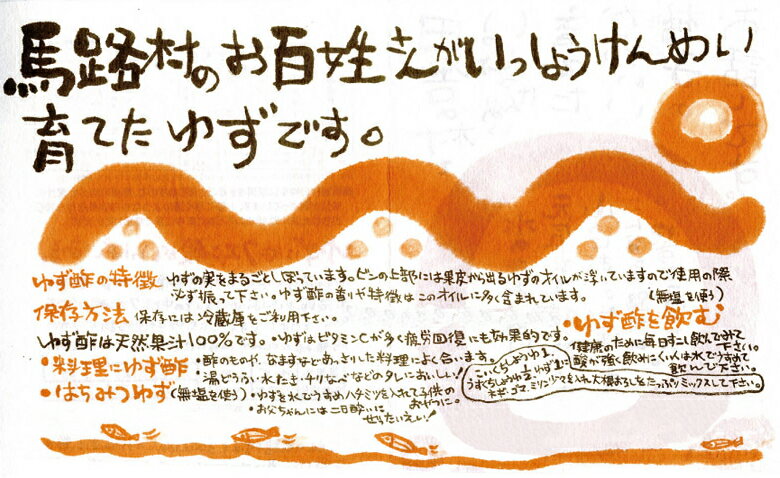 馬路村のお百姓さんがいっしょうけんめい
育てたゆずです。
ゆず酢の特徴 ゆずの実をまるごとしぼっています。ビンの上部には果皮から出るゆずのオイルが浮いていますので使用の際
必ず振って下さい。ゆず酢の香りや特徴はこのオイルに多く含まれています。
保存方法 保存には冷蔵庫をご利用下さい。
ゆず酢は天然果汁100%です。・ゆずはビタミンCが多く疲労回復にも効果的です。
・料理にゆず酢 ・酢のものや、なますなどあっさりした料理によく合います。
・湯どうふ・水たき・チリなべなどのタレにおいしい!
こいくちしょうゆ1、
うすくちしょうゆ1/2、ゆず1に
ネギ、ゴマ、ミリン少々を入れ大根おろしをたっぷりミックスして下さい。
・はちみつゆず (無塩を使う) ・ゆずを水でうすめハチミツを入れて子供の
おやつに。
・お父ちゃんには二日酔いに
ぜったいえい!
(無塩を使う)
・ゆず酢を飲む
健康のために毎日すこし飲んでみて
下さい。
酸が強く飲みにくい人は水でうすめて
飲んで下さい。